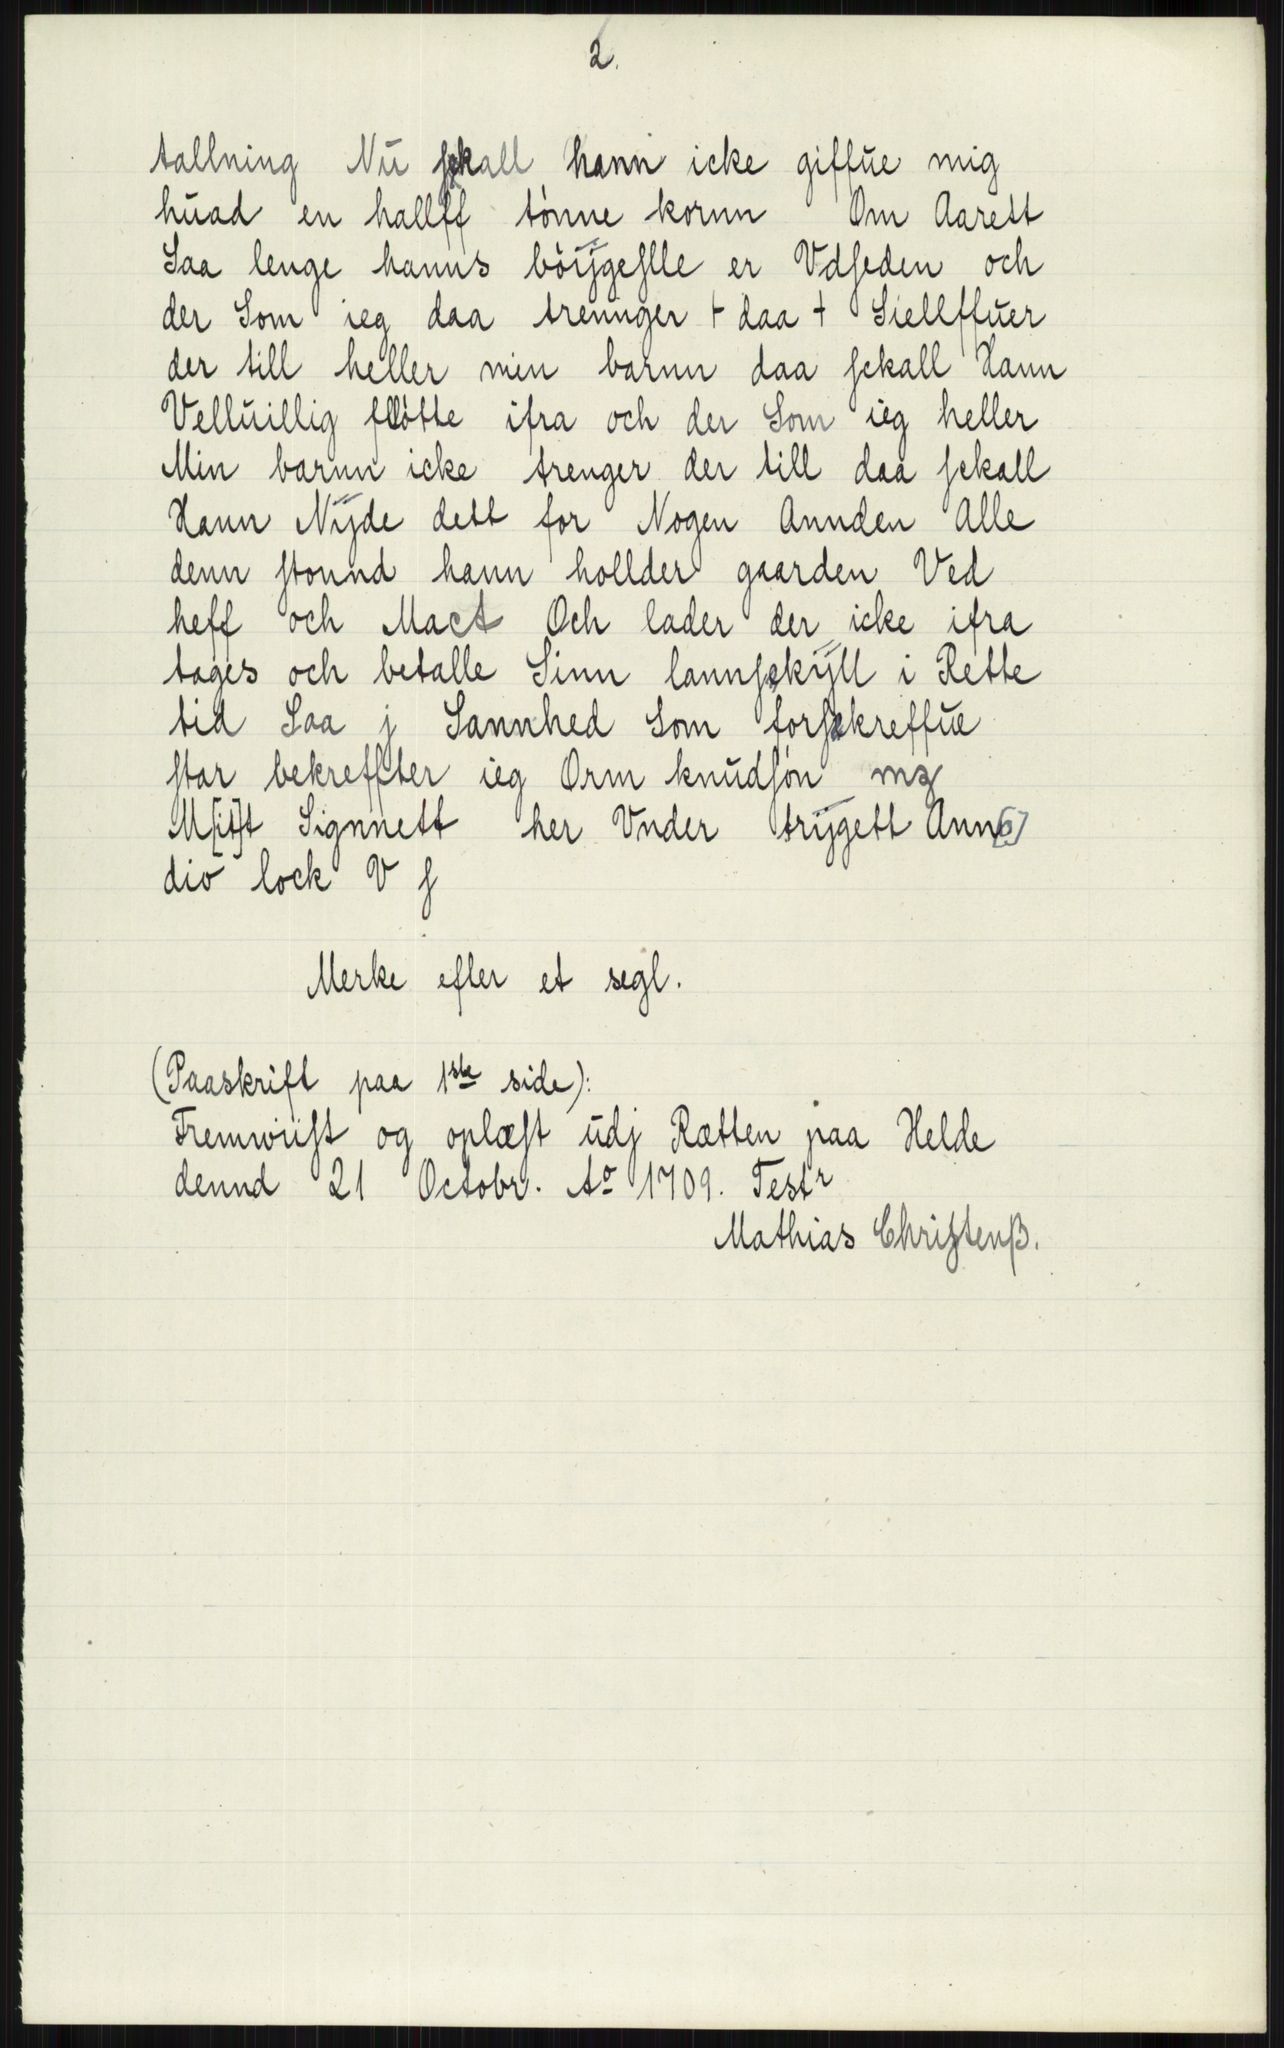 2.
tallning Nu skall hann icke giffue mig
huad en hallff tönne kornn Om Aarett
Saa lenge hanns böÿgeslle er Vdseden och
der Som ieg daa trennger + daa + Siellffuer
der till heller min barnn daa sckall Hann
Velluillig flötte ifra och der Som ieg heller
Min barnn icke trenger der till daa sckall
Hann Nÿde dett for Nogen Annden Alle
denn stonnd hann hollder gaarden Ved
heff och Mact Och lader der icke ifra
tages och betalle Sinn lannskÿll i Rette
tid Saa j Sannhed Som forskreffue
star bekreffter ieg Orm knudsön mz
M[it]t Signnett her Vnder trÿgett Ann[o]
div lock V s
Merke efter et segl.
(Paaskrift paa 1ste side):
Fremwist og oplæst udj Rætten paa Helde
dennd 21 Octobr. Ao 1709. Testr
Mathias Christenß.